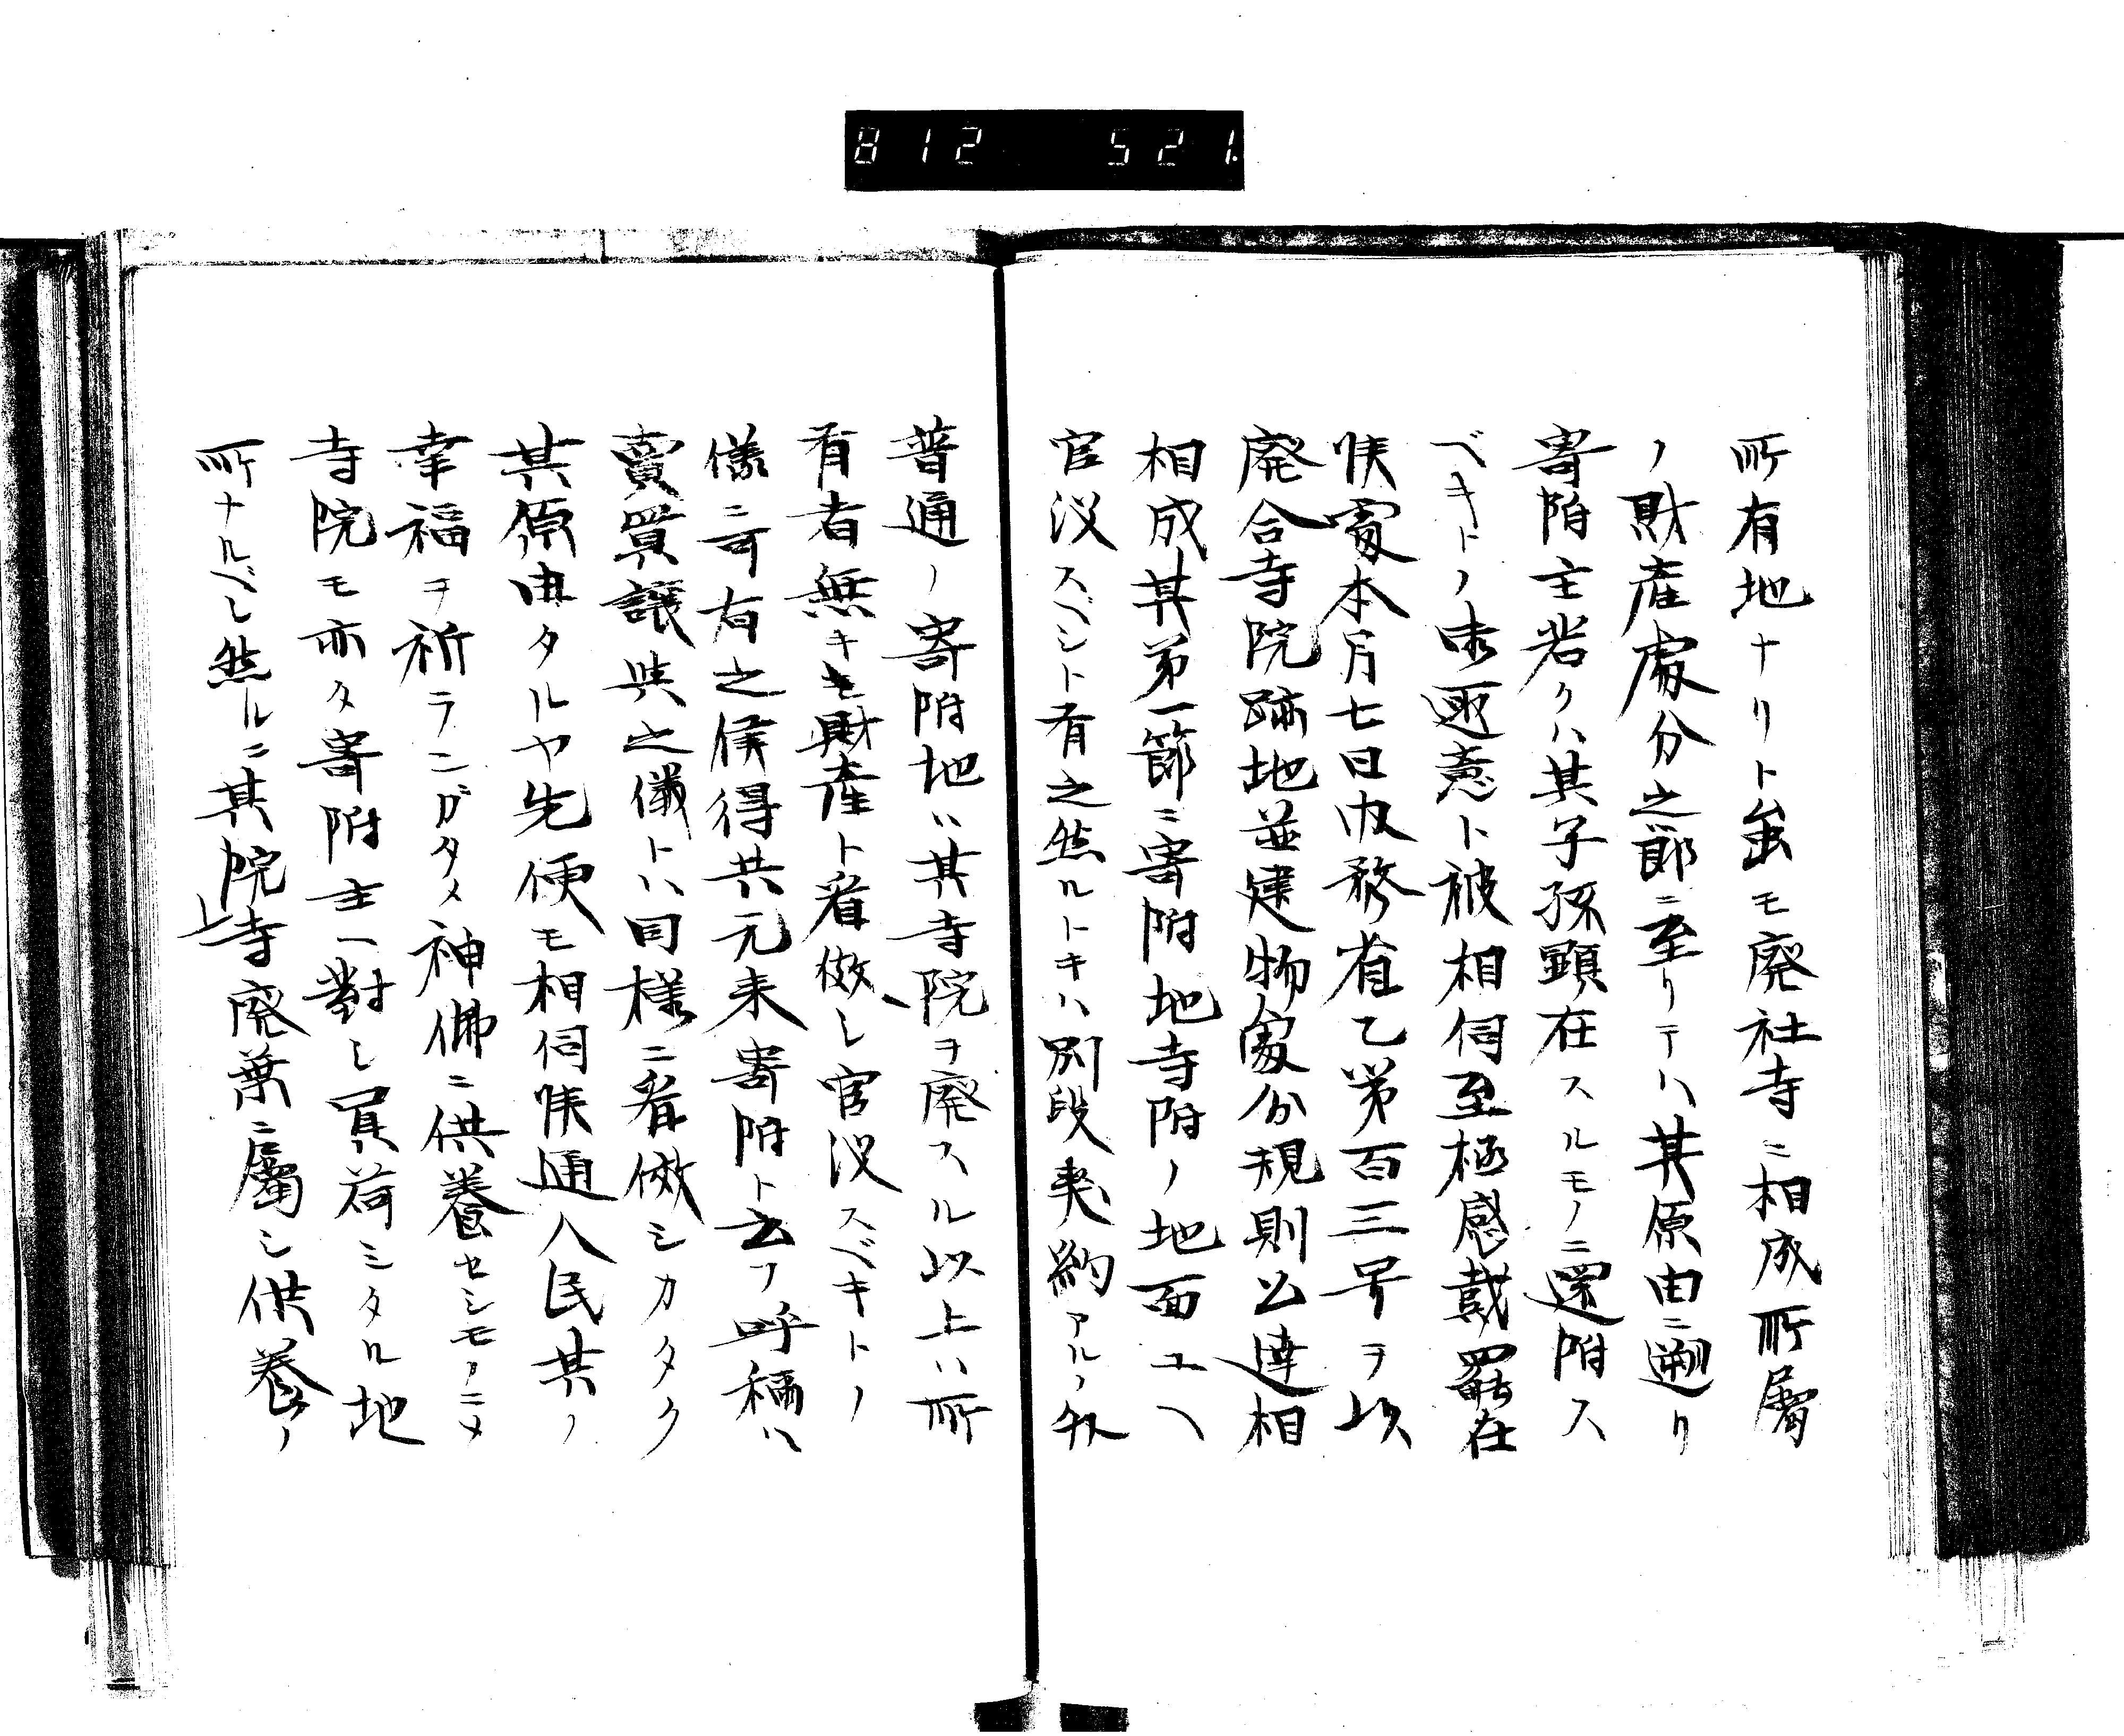 812 521.
所有地ナリト雖モ廃社寺ニ相成所属
ノ財産處分之節ニ至リテハ其原由ニ遡リ
寄附主若クハ其子孫顕在スルモノニ還附ス
ベキトノ御趣意ト被相伺至極感戴罷在
候處本月七日内務省乙第百三号ヲ以
廃合寺院跡地並建物處分規則公達相
相成其第一節ニ寄附地寺附ノ地面ユヘ
官没スベシト有之然ルトキハ別段契約アルノ外
普通ノ寄附地ハ其寺院ヲ廃スル以上ハ所
有者無キモ財産ト看做シ官没スベキトノ
儀ニ可有之候得共元来寄附ト云フ呼称ハ
賣買譲与之儀トハ同様ニ看做シカタク
其原由タルヤ先便モ相伺候通人民共ノ
幸福ヲ祈ランガタメ神佛ニ供養セシモノニメ
寺院モ亦タ寄附主ニ對シ負荷シタル地
所ナルベシ然ルニ其院寺廃棄ニ屬シ供養ノ